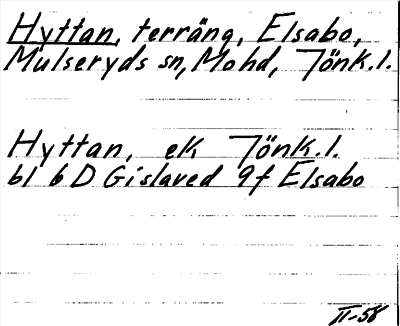 Hyttan, terräng, Elsabo,
Mulseryds sn, Mohd, Jönk.l.
Hyttan, ek Jönk.l.
bl 6 D Gislaved 9f Elsabo
II-58